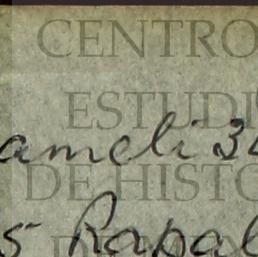 CENTRO
ESTUDI
ameli 3
DE HISTO
5 Rapal